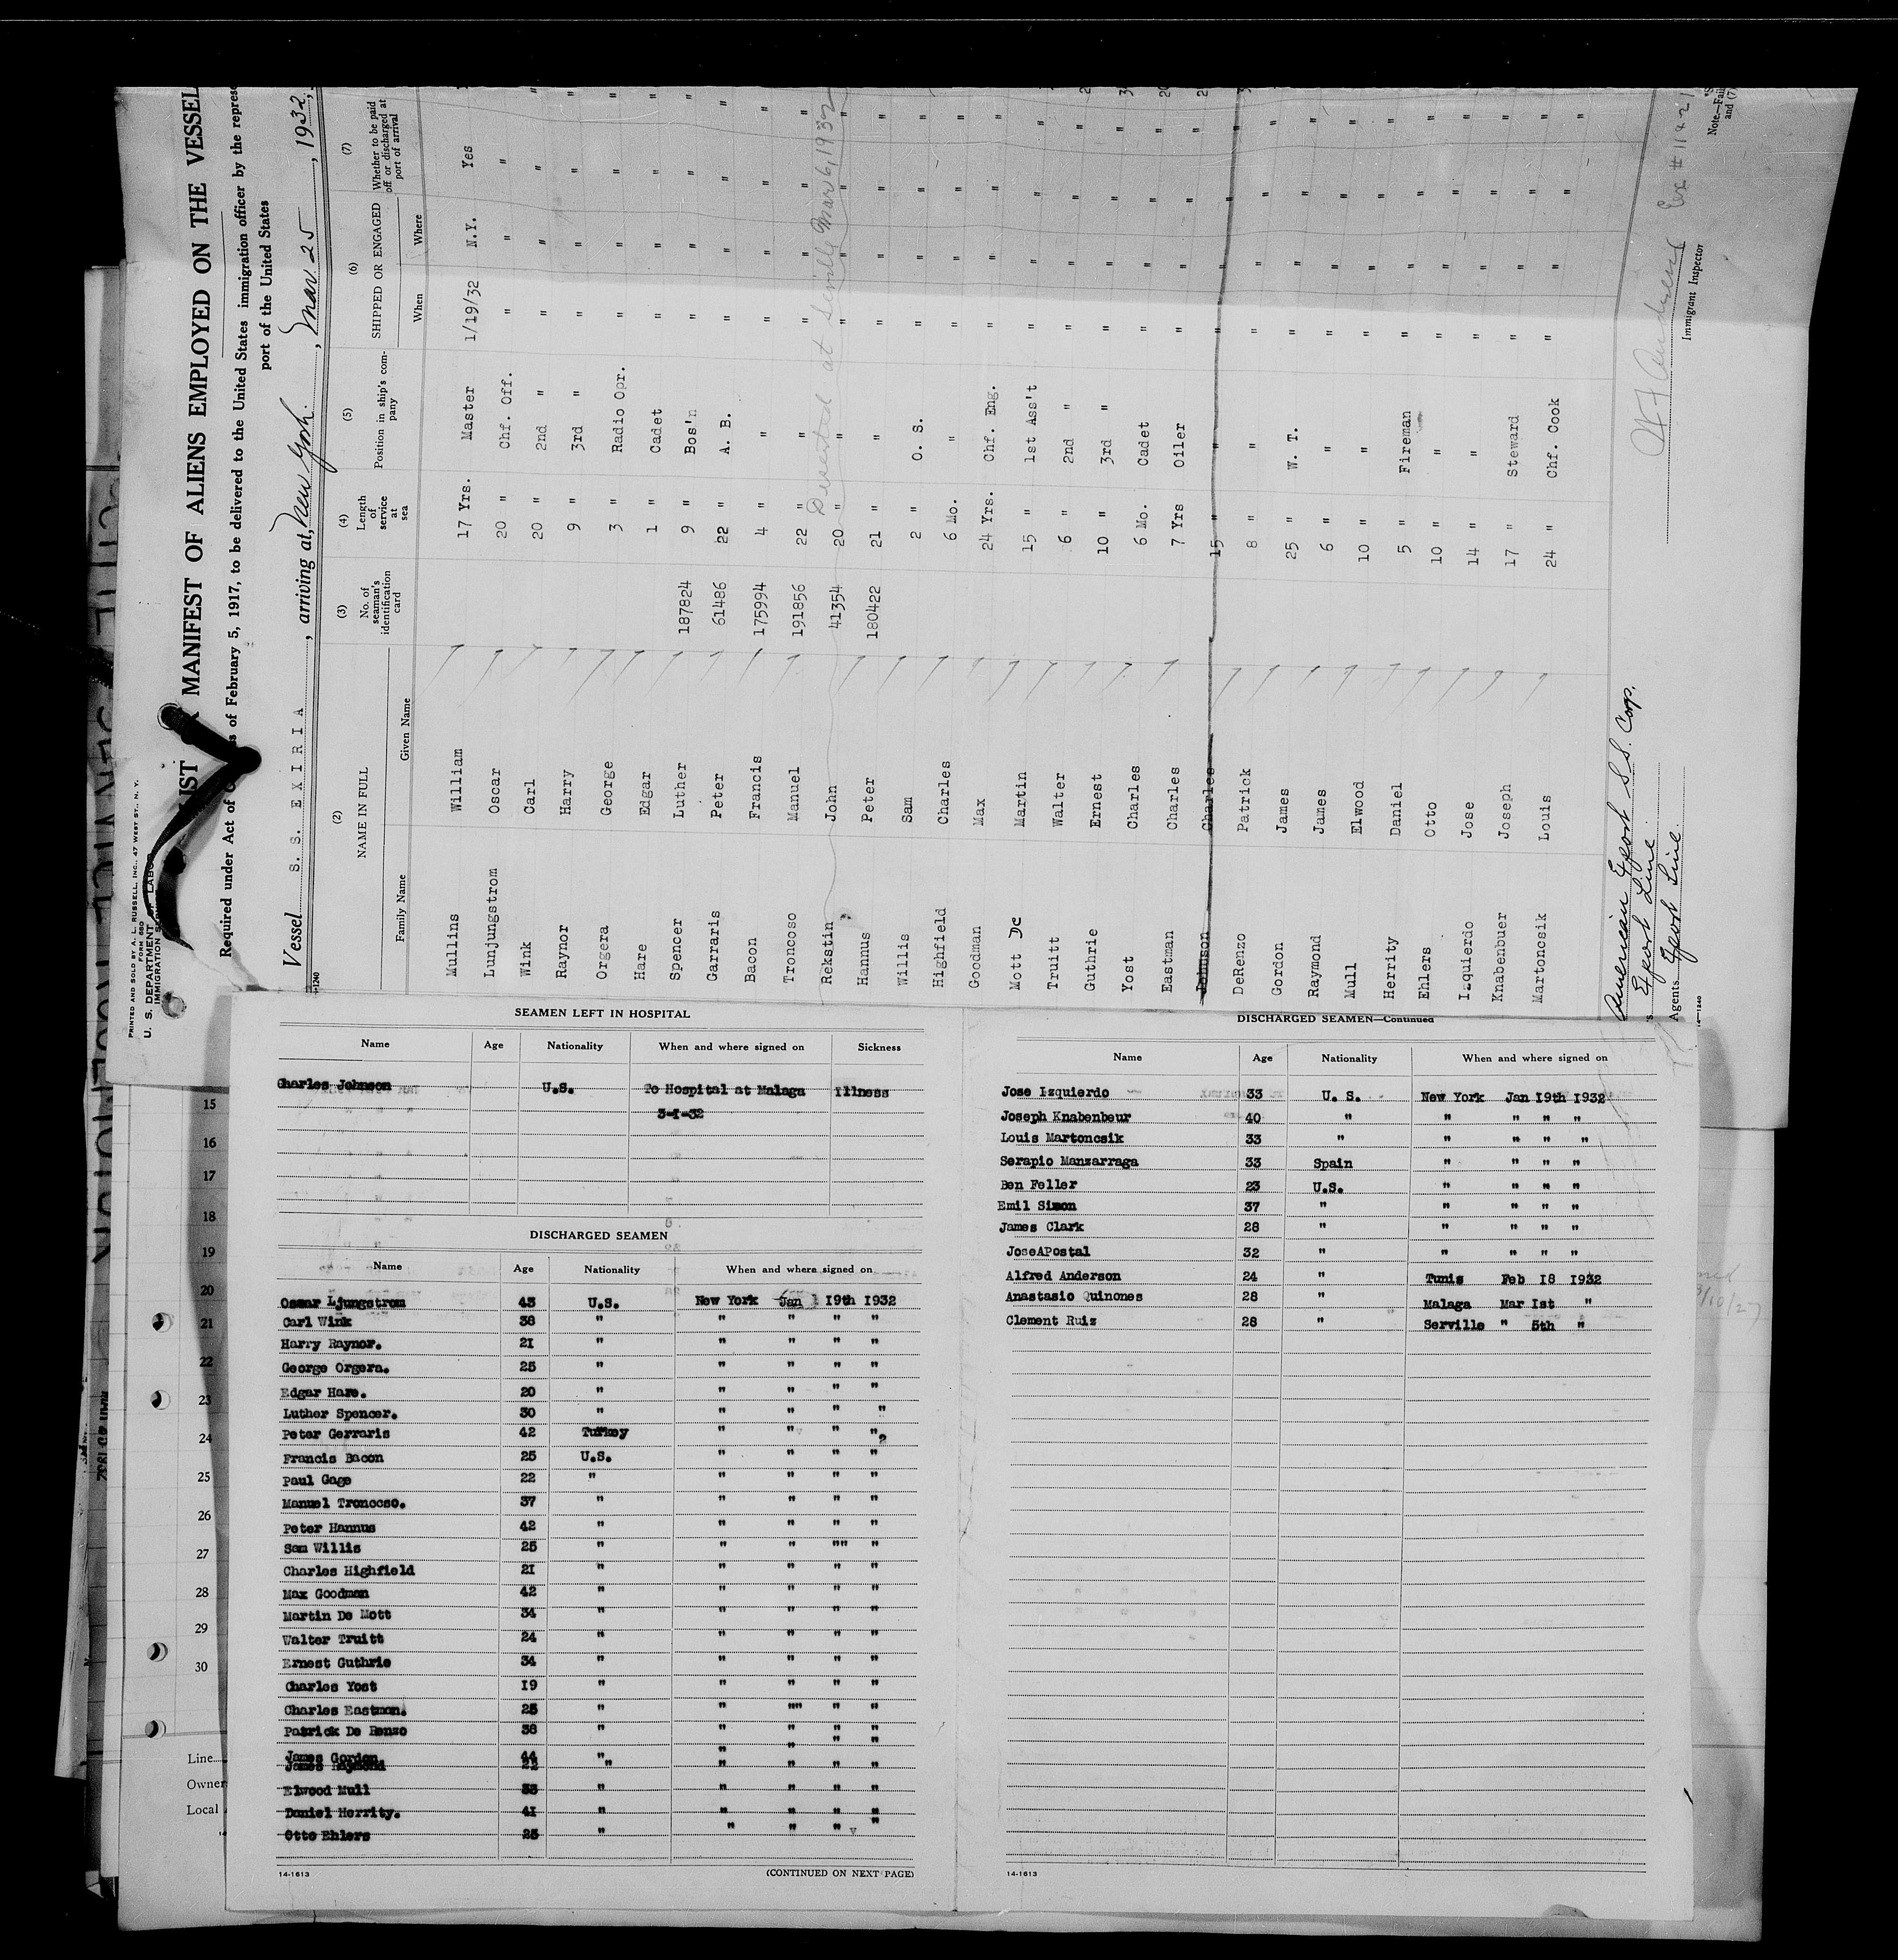 PRINTED AND SOLD BY A. L. RUSSELL, INC., 47 WEST ST., N. Y.
FORM 680
U. S. DEPARTMENT LABOR
IMMIGRATION
MANIFEST OF ALIENS EMPLOYED ON THE VESSEL
Required under Act of s of February 5, 1917, to be delivered to the United States immigration officer by the repres
port of the United States
Vessel S. S. EXIRIA, arriving at, New York., Mar 25, 1932,
14-1240
(2) (3) (4) (5) (6) (7)
NAME IN FULL No. of seaman's identification card Length of service at sea Position in ship's company SHIPPED OR ENGAGED Whether to be paid off or discharged at port of arrival
Family Name Given Name When Where
Mullins William 17 Yrs. Master 1/19/32 N.Y. Yes
Lunjungstrom Oscar 20 " Chf. Off. " " "
Wink Carl 20 " 2nd " " " "
Raynor Harry 9 " 3rd " " " "
Orgera George 3 " Radio Opr. " " "
Hare Edgar 1 " Cadet " " "
Spencer Luther 187824 9 " Bos'n " " "
Garraris Peter 61486 22 " A. B. " " "
Bacon Francis 175994 4 " " " " "
Troncoso Manuel 191856 22 " " " " "
Rekstin John 41354 20 " " " " "
Deserted at Seville Mar 6, 1932
Hannus Peter 180422 21 " " " " "
Willis Sam 2 " O. S. " " "
Highfield Charles 6 Mo. " " " "
Goodman Max 24 Yrs. Chf. Eng. " " "
Mott De Martin 15 " 1st Ass't " " "
Truitt Walter 6 " 2nd " " " "
Guthrie Ernest 10 " 3rd " " " "
Yost Charles 6 Mo. Cadet " " "
Eastman Charles 7 Yrs Oiler " " "
Johnson Charles 15 " " " " "
DeRenzo Patrick 8 " " " " "
Gordon James 25 " W. T. " " "
Raymond James 6 " " " " "
Mull Elwood 10 " " " " "
Herrity Daniel 5 " Fireman " " "
Ehlers Otto 10 " " " " "
Izquierdo Jose 14 " " " " "
Knabenbuer Joseph 17 " Steward " " "
Martonosik Louis 24 " Chf. Cook " " "
American Export S.S. Corp.
Export Line
Agents Export Line.
14-1240
Immigrant Inspector
Note.—Fail
and (7)
SEAMEN LEFT IN HOSPITAL
Name Age Nationality When and where signed on Sickness
Charles Johnson U.S. To Hospital at Malaga Illness
3-I-32
DISCHARGED SEAMEN
Name Age Nationality When and where signed on
Oscar Ljungstrom 43 U.S. New York Jan 19th 1932
Carl Wink 38 " " " " "
Harry Raynor. 21 " " " " "
George Orgera. 25 " " " " "
Edgar Hare. 20 " " " " "
Luther Spencer. 30 " " " " "
Peter Gerraris 42 Turkey " " " "
Francis Bacon 25 U.S. " " " "
Paul Gage 22 " " " " "
Manuel Troncoso. 37 " " " " "
Peter Hannus 42 " " " " "
Sam Willis 25 " " " "" "
Charles Highfield 21 " " " " "
Max Goodman 42 " " " " "
Martin De Mott 34 " " " " "
Walter Truitt 24 " " " " "
Ernest Guthrie 34 " " " " "
Charles Yost 19 " " " " "
Charles Eastman. 25 " " "" " "
Patrick De Renzo 38 " " " " "
James Gordon 44 " " " " "
James Raymond 22 " " " " "
Elwood Mull 33 " " " " "
Daniel Herrity. 41 " " " " "
Otto Ehlers 25 " " " " "
14-1613 (CONTINUED ON NEXT PAGE)
DISCHARGED SEAMEN—Continued
Name Age Nationality When and where signed on
Jose Izquierdo 33 U. S. New York Jan 19th 1932
Joseph Knabenbeur 40 " " " " "
Louis Martoncsik 33 " " " " "
Serapio Manzarraga 33 Spain " " " "
Ben Feller 23 U.S. " " " "
Emil Simon 37 " " " " "
James Clark 28 " " " " "
JoseAPostal 32 " " " " "
Alfred Anderson 24 " Tunis Feb 18 1932
Anastasio Quinones 28 " Malaga Mar Ist "
Clement Ruiz 28 " Serville " 5th "
14-1613
15
16
17
18
19
20
21
22
23
24
25
26
27
28
29
30
Line
Owner
Local